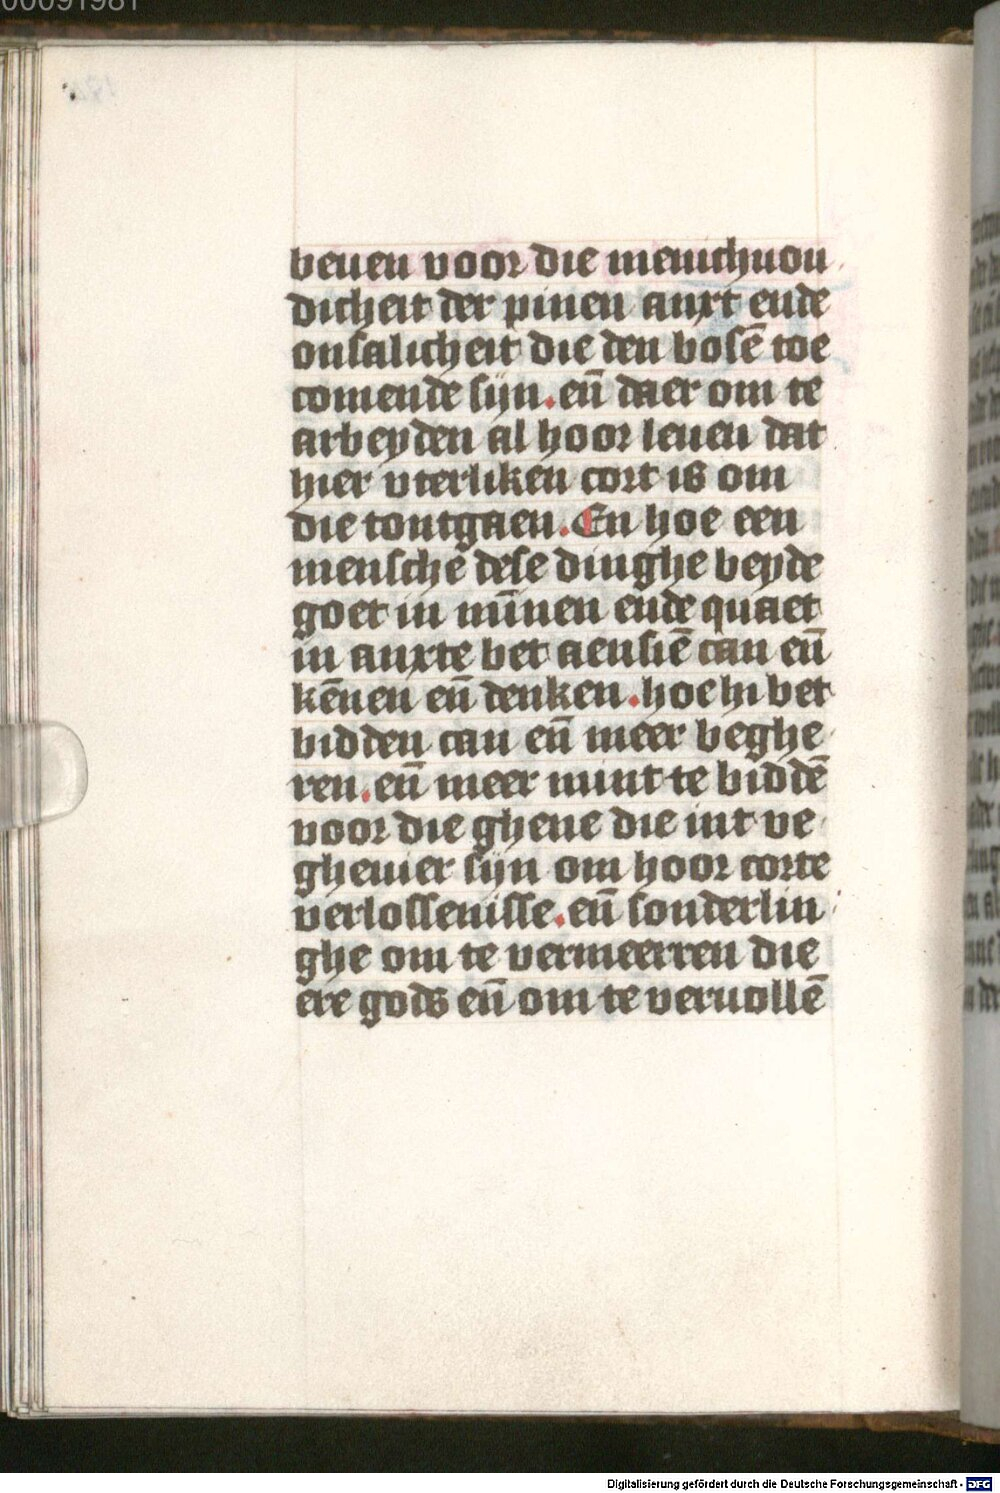 00091981
beuen voor die menichuou
dicheit der pinen anxt ende
onsalicheit die den bosē toe
comende sijn . eñ daer om te
arbeyden al hoor leuen dat
hier vterliken cort is om
die tontgaen . En hoe een
menschē dese dinghe beyde
goet in mīnen ende quaet
in anxte bet aensiē can eñ
kēnen eñ denken . hoe hi bet
bidden can eñ meer beghe
ren . eñ meer mint te biddē
voor die ghene die int ve
gheuier sijn om hoor corte
verlossenisse . eñ sonderlin
ghe om te vermeerren die
ere gods eñ om te veruollē
Digitalisierung gefördert durch die Deutsche Forschungsgemeinschaft - DFG